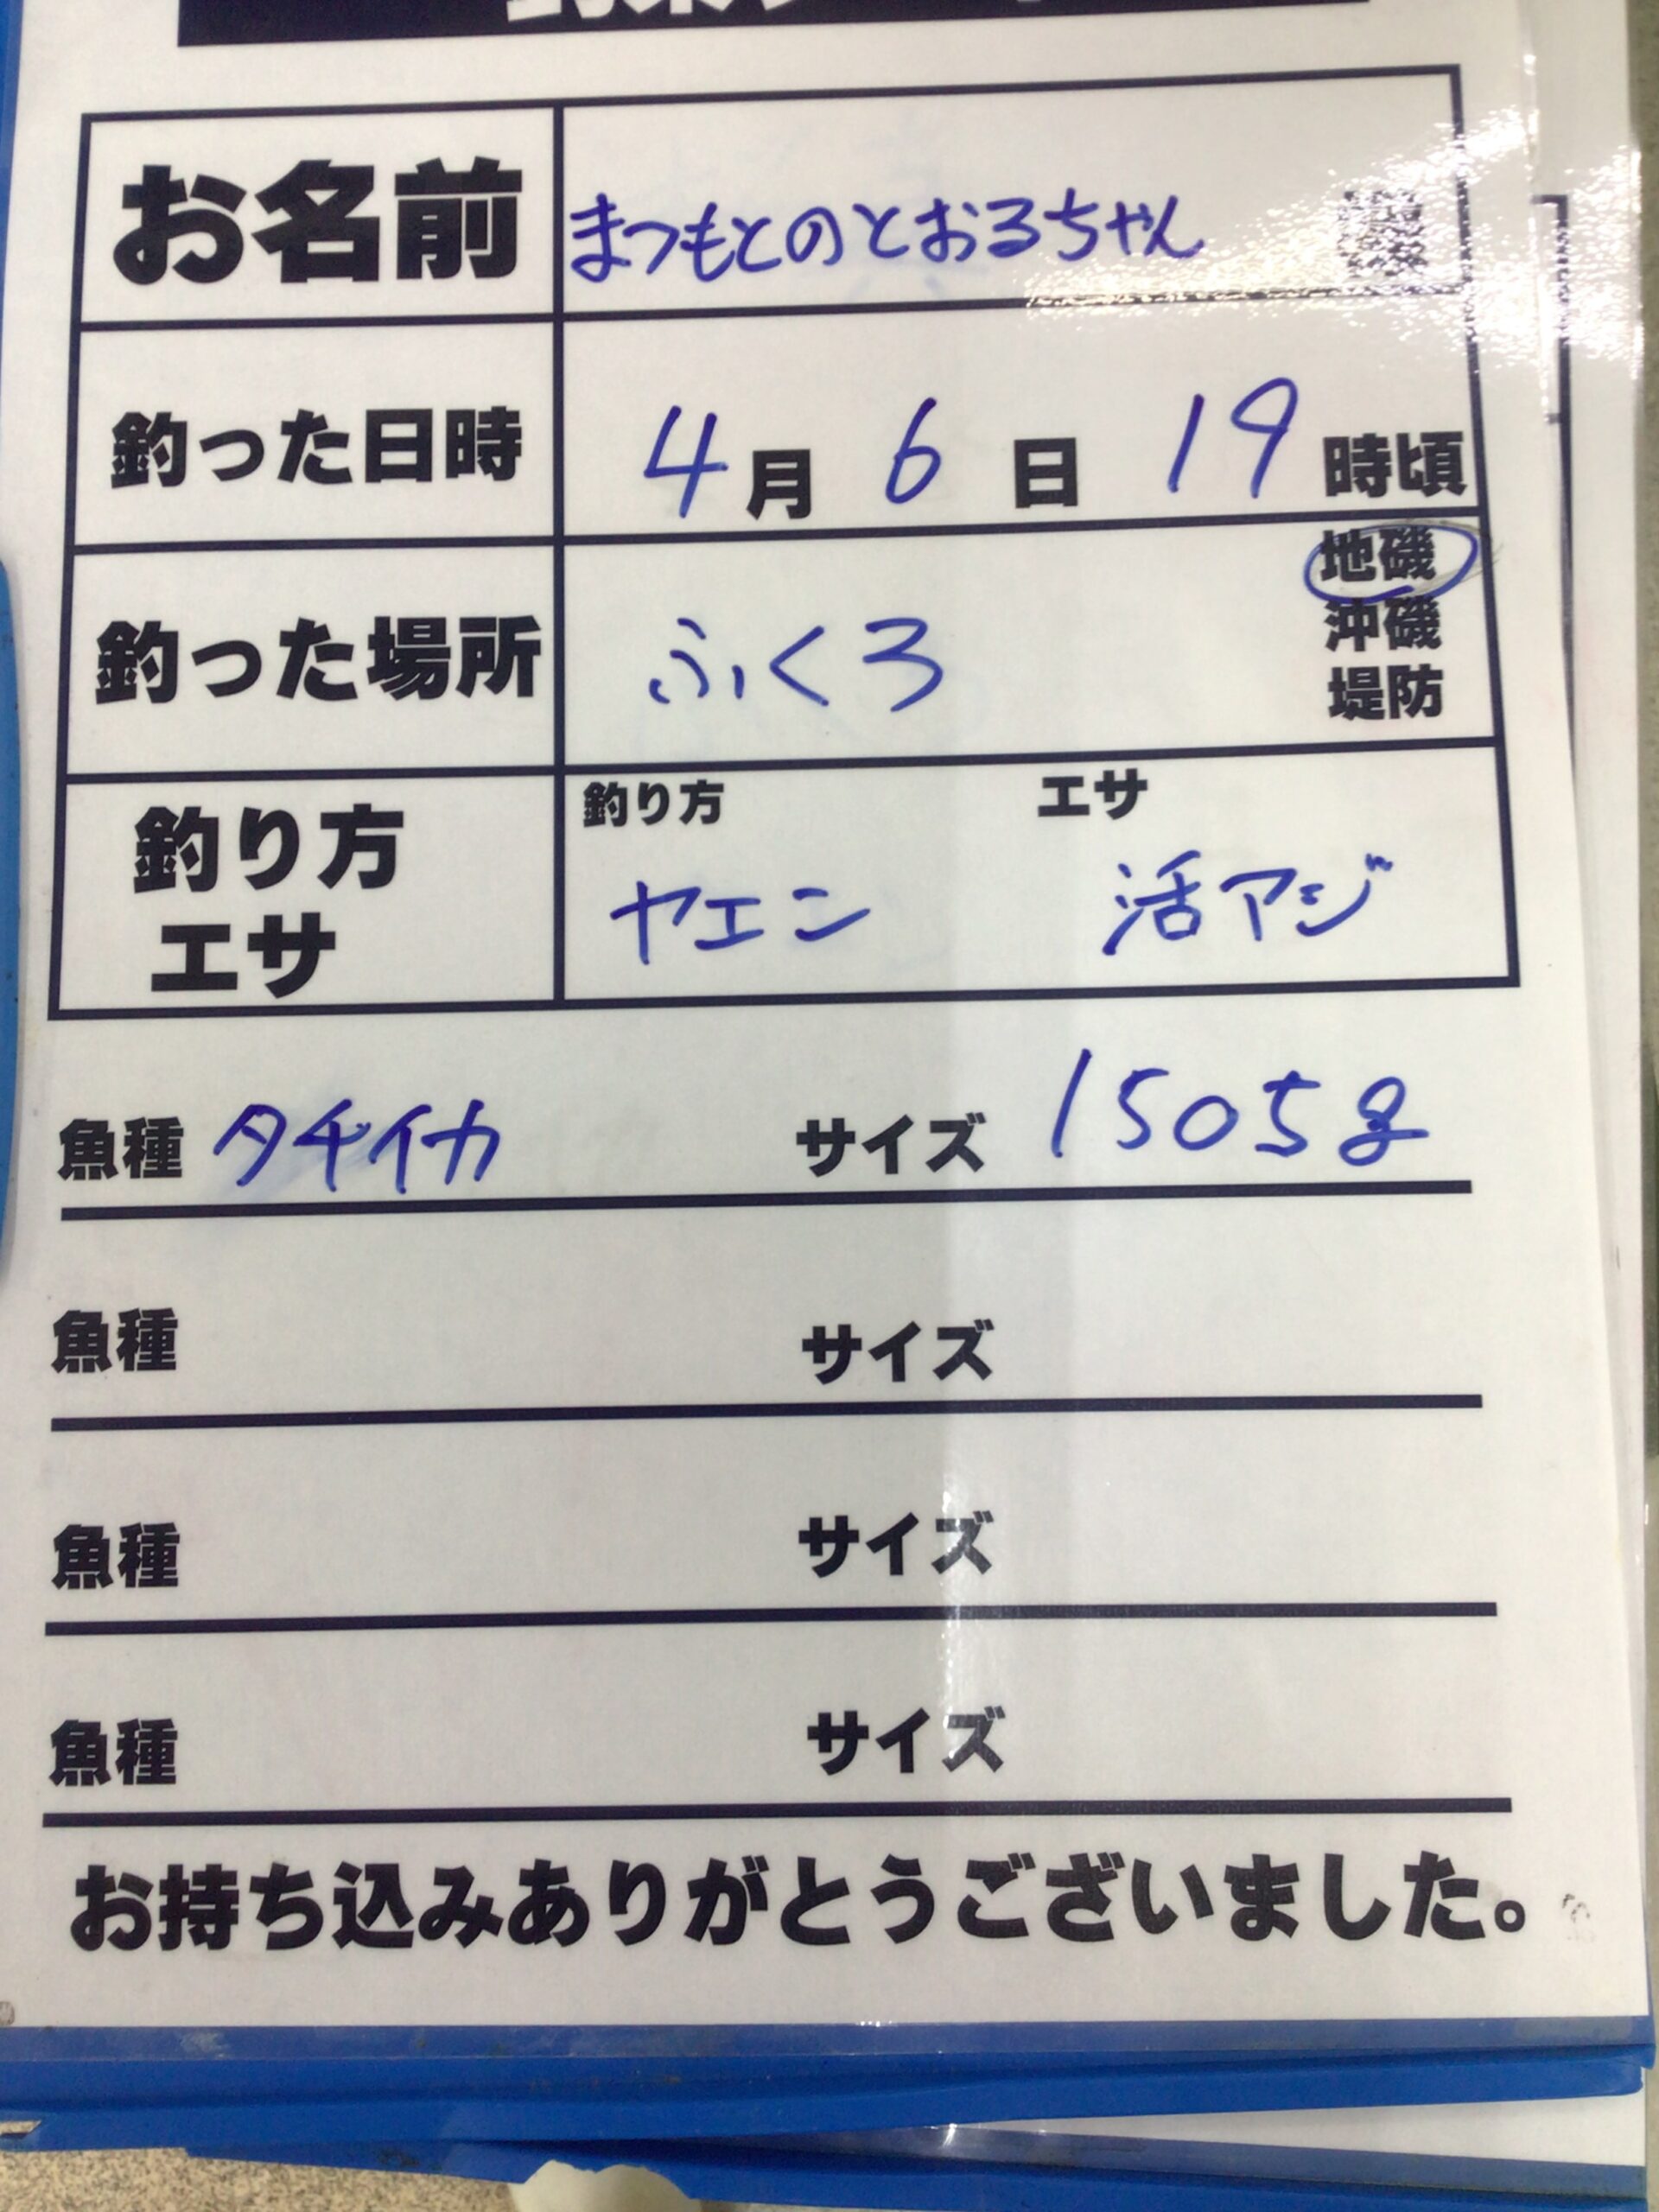 お名前 まつもとのとおるちゃん 様
釣った日時 4月 6日 19時頃
釣った場所 ふくろ 地磯
沖磯
堤防
釣り方 エサ
釣り方 ヤエン 活アジ
エサ
魚種 タチイカ サイズ 1505g
魚種 サイズ
魚種 サイズ
魚種 サイズ
お持ち込みありがとうございました。